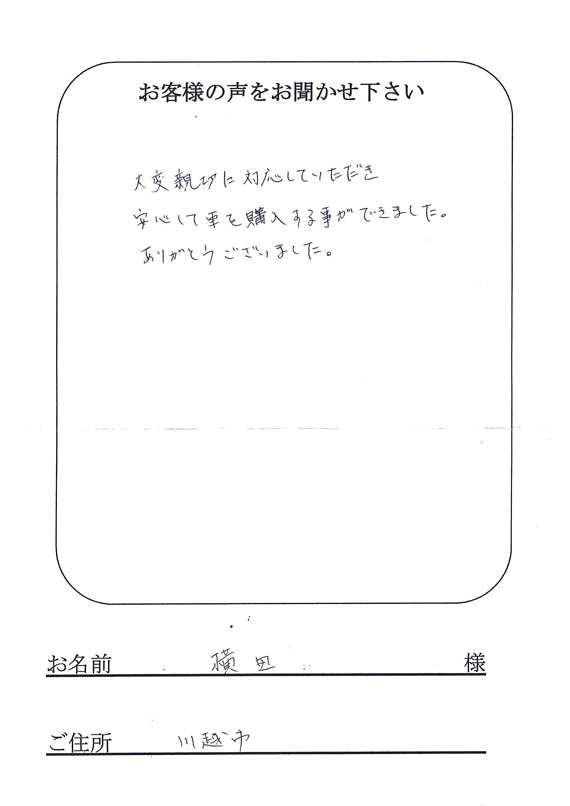 お客様の声をお聞かせ下さい
大変親切に対応していただき
安心して車を購入する事ができました。
ありがとうございました。
お名前 横田 様
ご住所 川越市